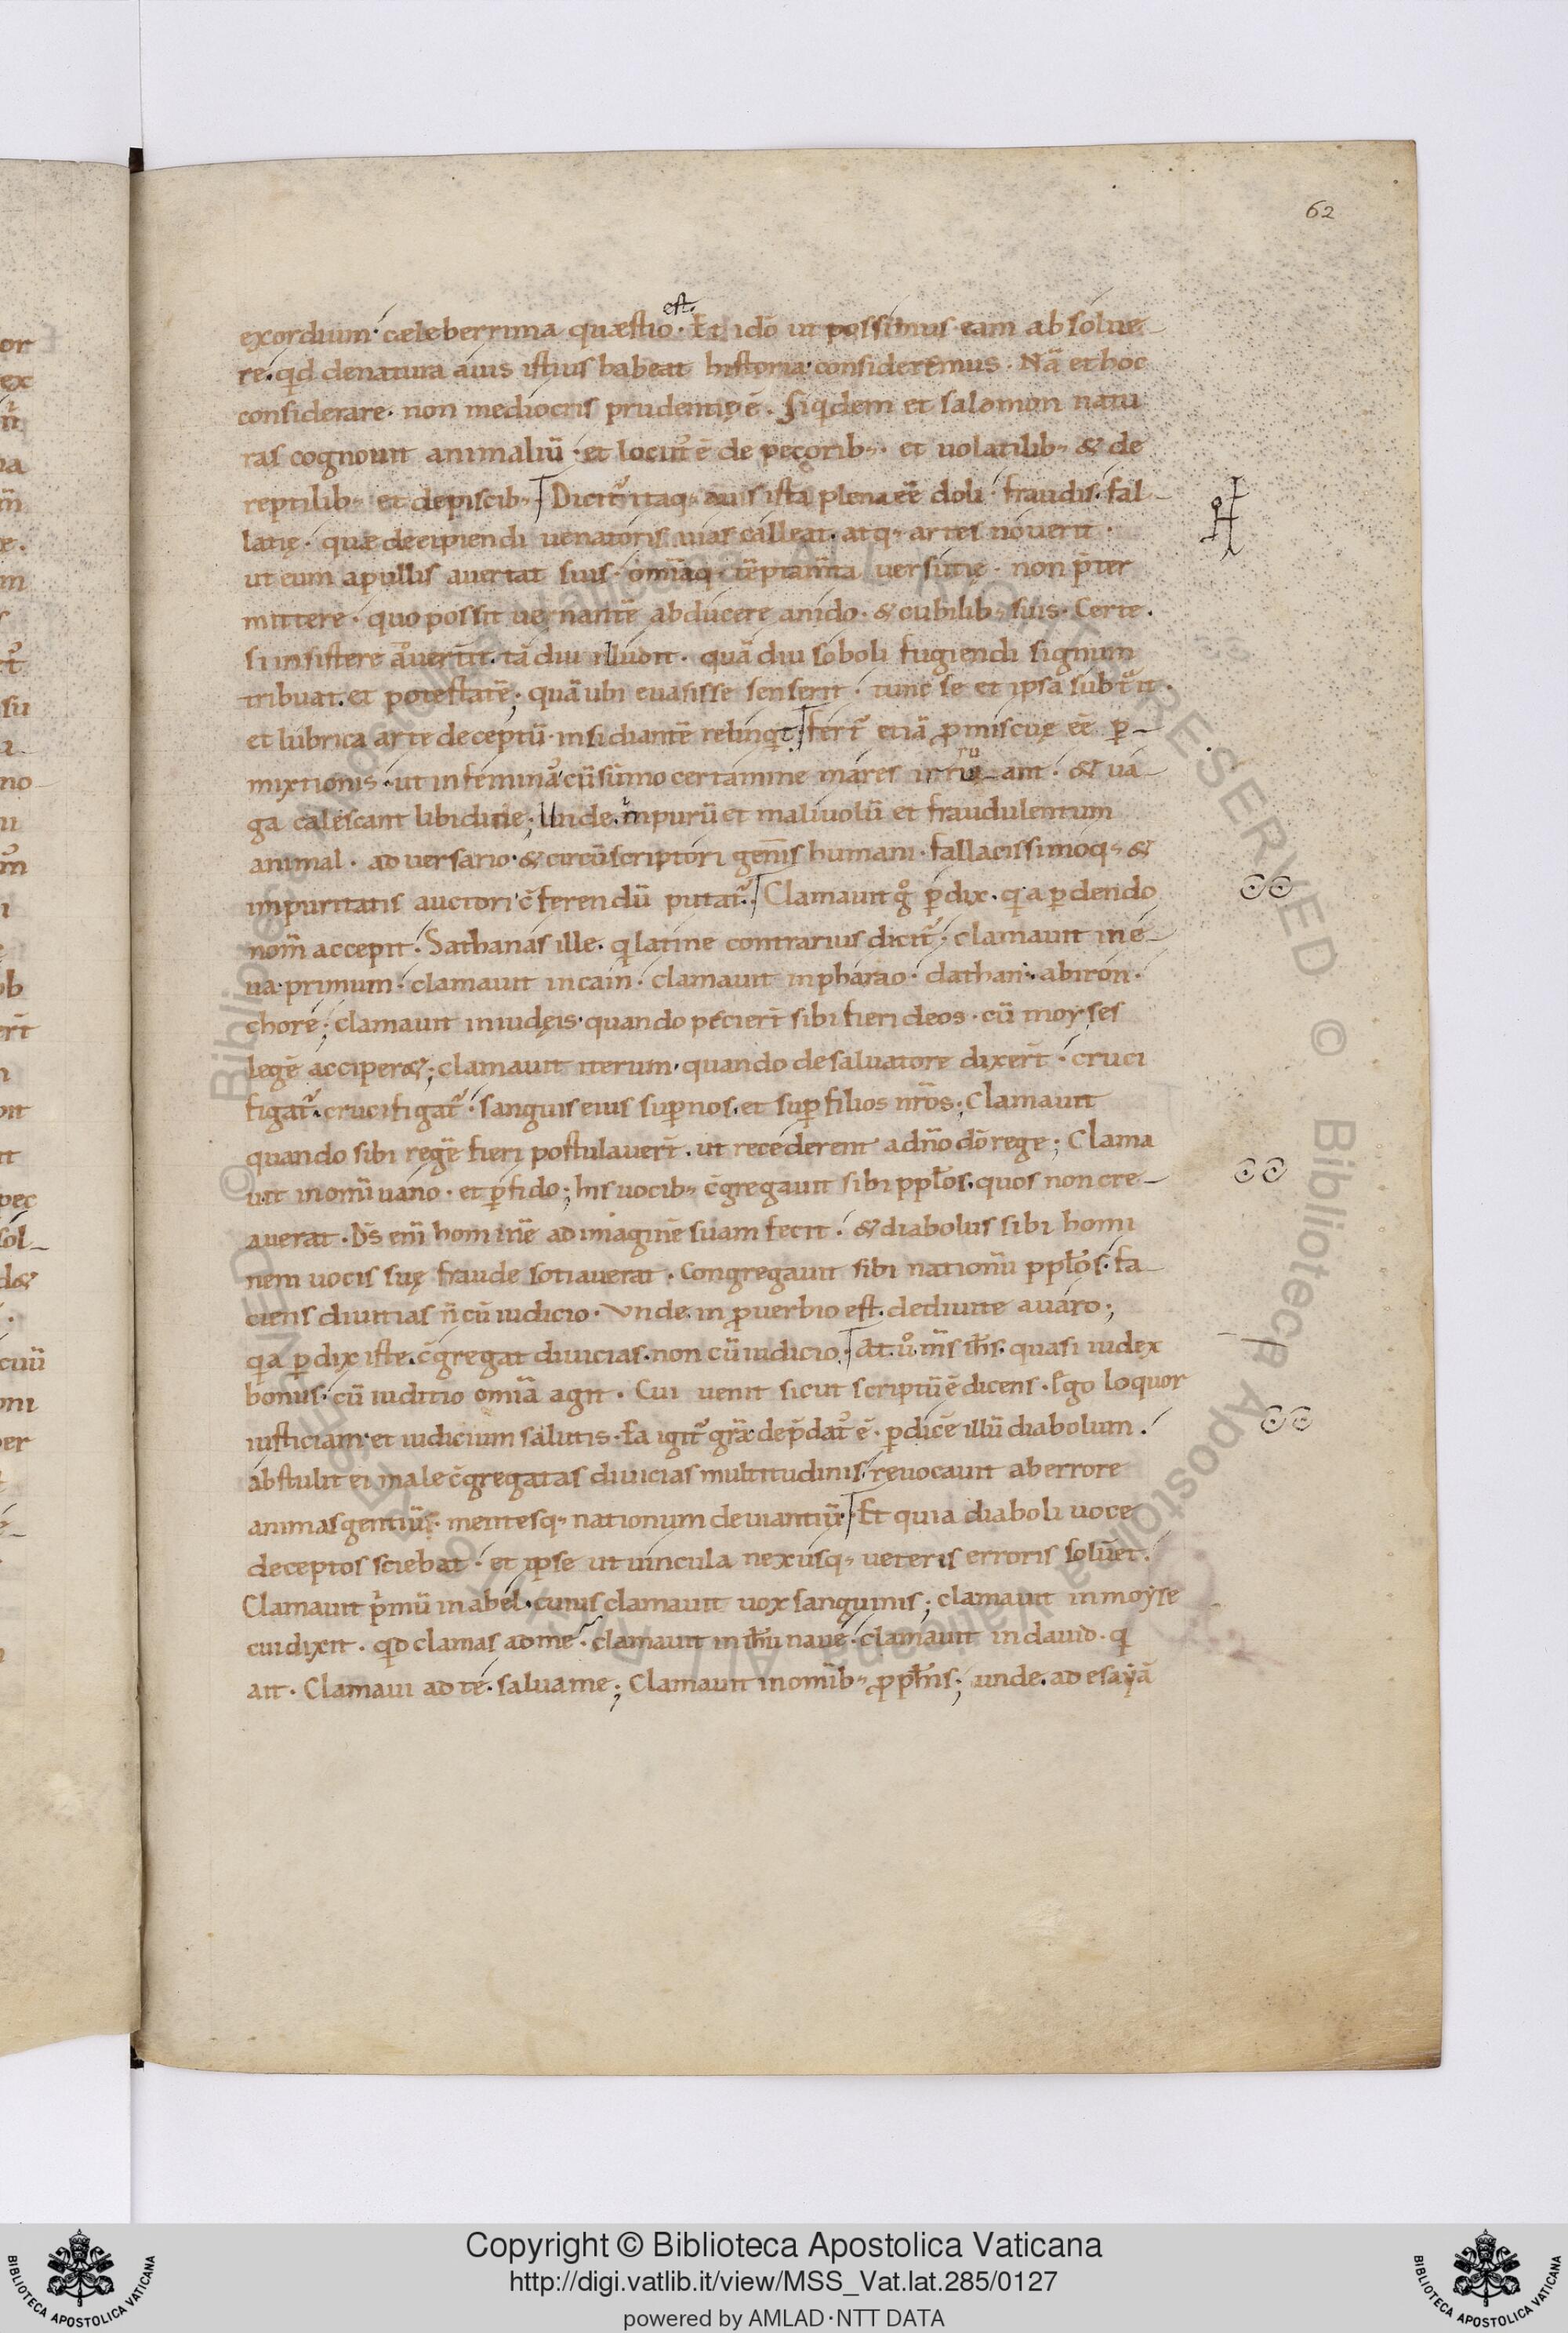 62
est.
exordium· cæleberrima quæstio · Et idō ut possimus eam absolue-
re· qd denatura auis istius habeat historia consideremus · Nā et hoc
considerare· non mediocris prudentię ē · Siqdem et salomon natu
ras cognouit animaliū · et locut᷒ ē de pecorib;· et uolatilib; & de
reptilib; et depiscib; Dicit᷒ itaq; auis ista plena eē doli· fraudis· fal-
latię · quæ decipiendi uenatoris uias calleat· atq; artes nouerit ·
ut eum apullis auertat suis· om̄iaq; tēptam̄ta uersutię · non p̄ter
mittere · quo possit uernantē abducere anido· & cubilib; suis· Certe·
si insistere aduert̄it· tā diu illudit · quā diu soboli fugiendi signum
tribuat· et potestatē; quā ubi euasisse senserit · tunc se et ipsa subt᷒it·
et lubrica arte deceptū· insidiantē relinqt; fert᷒ etiā ꝓmiscuę eē ꝑ-
mixtionis· ut in feminā cū sūmo certamine mares irruant· & ua-
ga calescant libidine; Unde inpurū et maliuolū et fraudulentum
animal· aduersario· & circūscriptori gen̄is humani· fallacissimoq; &
impuritatis auctori c̄ferendū putat᷒· Clamauit gͦ ꝑdix· qa ꝑdendo
nom̄ accepit· Sathanas ille· q latine contrarius dicit᷒· clamauit in e-
ua primum· clamauit in cain· clamauit in pharao· dathan· abiron·
chore; clamauit in iudęis· quando pecier̄t sibi fieri deos· cū moyses
legē acciper&; clamauit iterum· quando de saluatore dixer̄t · cruci
figat᷒· crucifigat᷒· sanguis eius suꝑ nos· et suꝑ filios nr̄os; Clamauit
quando sibi regē fieri postulauer̄t· ut recederent adn̄o dō rege; Clama
uit in omī uano · et ꝑfido; his uocib; c̄gregauit sibi pplos· quos non cre-
auerat· Dſ enī hominē ad imaginē suam fecit · & diabolus sibi homi
nem uocis suę fraude sotiauerat · Congregauit sibi nationū pplos· fa-
ciens diuitias n̄ cū iudicio· Unde in ꝓuerbio est· dediuite auaro;
qa ꝑdix iste c̄gregat diuicias· non cū iudicio· At uͦ m̄s ih̄s· quasi iudex
bonus· cū iuditio omīa agit · Cui uenit sicut scriptū ē dicens· Ego loquor
iusticiam· et iudicium salutis· fa igit᷒ gr̄a dep̄dat᷒ ē · ꝑdicē illū diabolum·
abstulit ei male c̄gregatas diuicias multitudinis· reuocauit ab errore
animas gentiū· mentesq; nationum deuiantiū· Et quia diaboli uoce
deceptos sciebat· et ipse ut uincula nexusq; ueteris erroris soluet·
Clamauit p̄mū in abel· cuius clamauit uox sanguinis; clamauit in moyse
cui dixit · qd clamas ad me· clamauit in ih̄u naue· clamauit in dauid· q
ait · Clamaui ad te· salua me; Clamauit in omīb; ꝓph̄is; unde· ad esayā
Copyright © Biblioteca Apostolica Vaticana
http://digi.vatlib.it/view/MSS_Vat.lat.285/0127
powered by AMLAD·NTT DATA
BIBLIOTECA APOSTOLICA VATICANA
BIBLIOTECA APOSTOLICA VATICANA